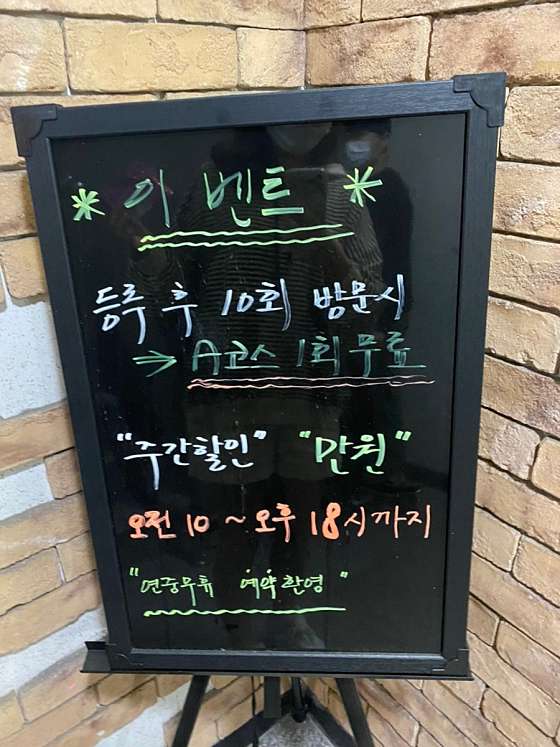 * 이벤트 *
등록 후 10회 방문시
→ A코스 1회 무료
"주간할인" "만원"
오전 10 ~ 오후 18시까지
"연중무휴 예약환영"